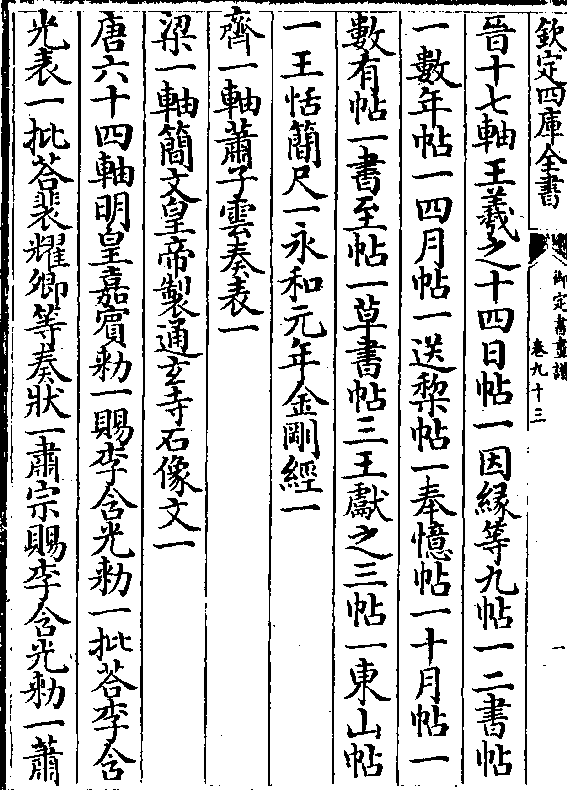 欽定四庫全書
御定書畫譜
卷九十三
一
晉十七軸王羲之十四日帖一因緣等九帖一二書帖
一數年帖一四月帖一送棃帖一奉憶帖一十月帖一
數有帖一書至帖一草書帖三王獻之三帖一東山帖
一王恬簡尺一永和元年金剛經一
齊一軸蕭子雲奏表一
梁一軸簡文皇帝製通玄寺石像文一
唐六十四軸明皇嘉賓勑一賜李含光勑一批荅李含
光表一批荅裴耀卿等奏狀一肅宗賜李含光勑一蕭